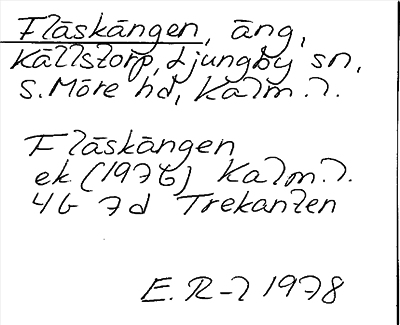 Fläskängen, äng,
Källstorp, Ljungby sn,
S. Möre hd, Kalm. l.
Fläskängen
ek. (1976) Kalm. l.
4G 7d Trekanten
E. R-l 1978